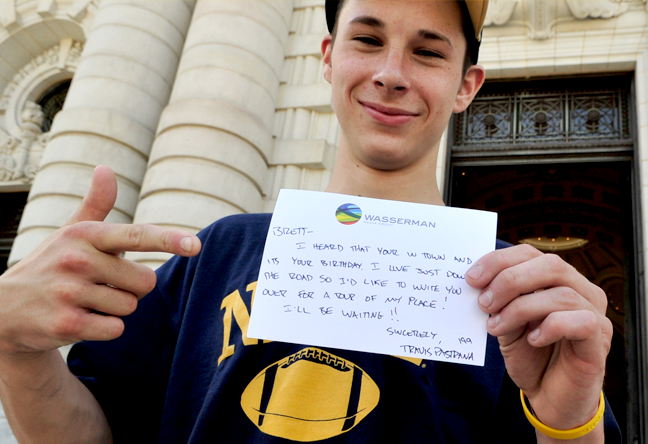 WASSERMAN
BRETT-
I HEARD THAT YOUR IN TOWN AND
ITS YOUR BIRTHDAY. I LIVE JUST DOWN
THE ROAD SO I'D LIKE TO INVITE YOU
OVER FOR A TOUR OF MY PLACE!
I'LL BE WAITING!!
SINCERELY,
199
TRAVIS PASTRANA